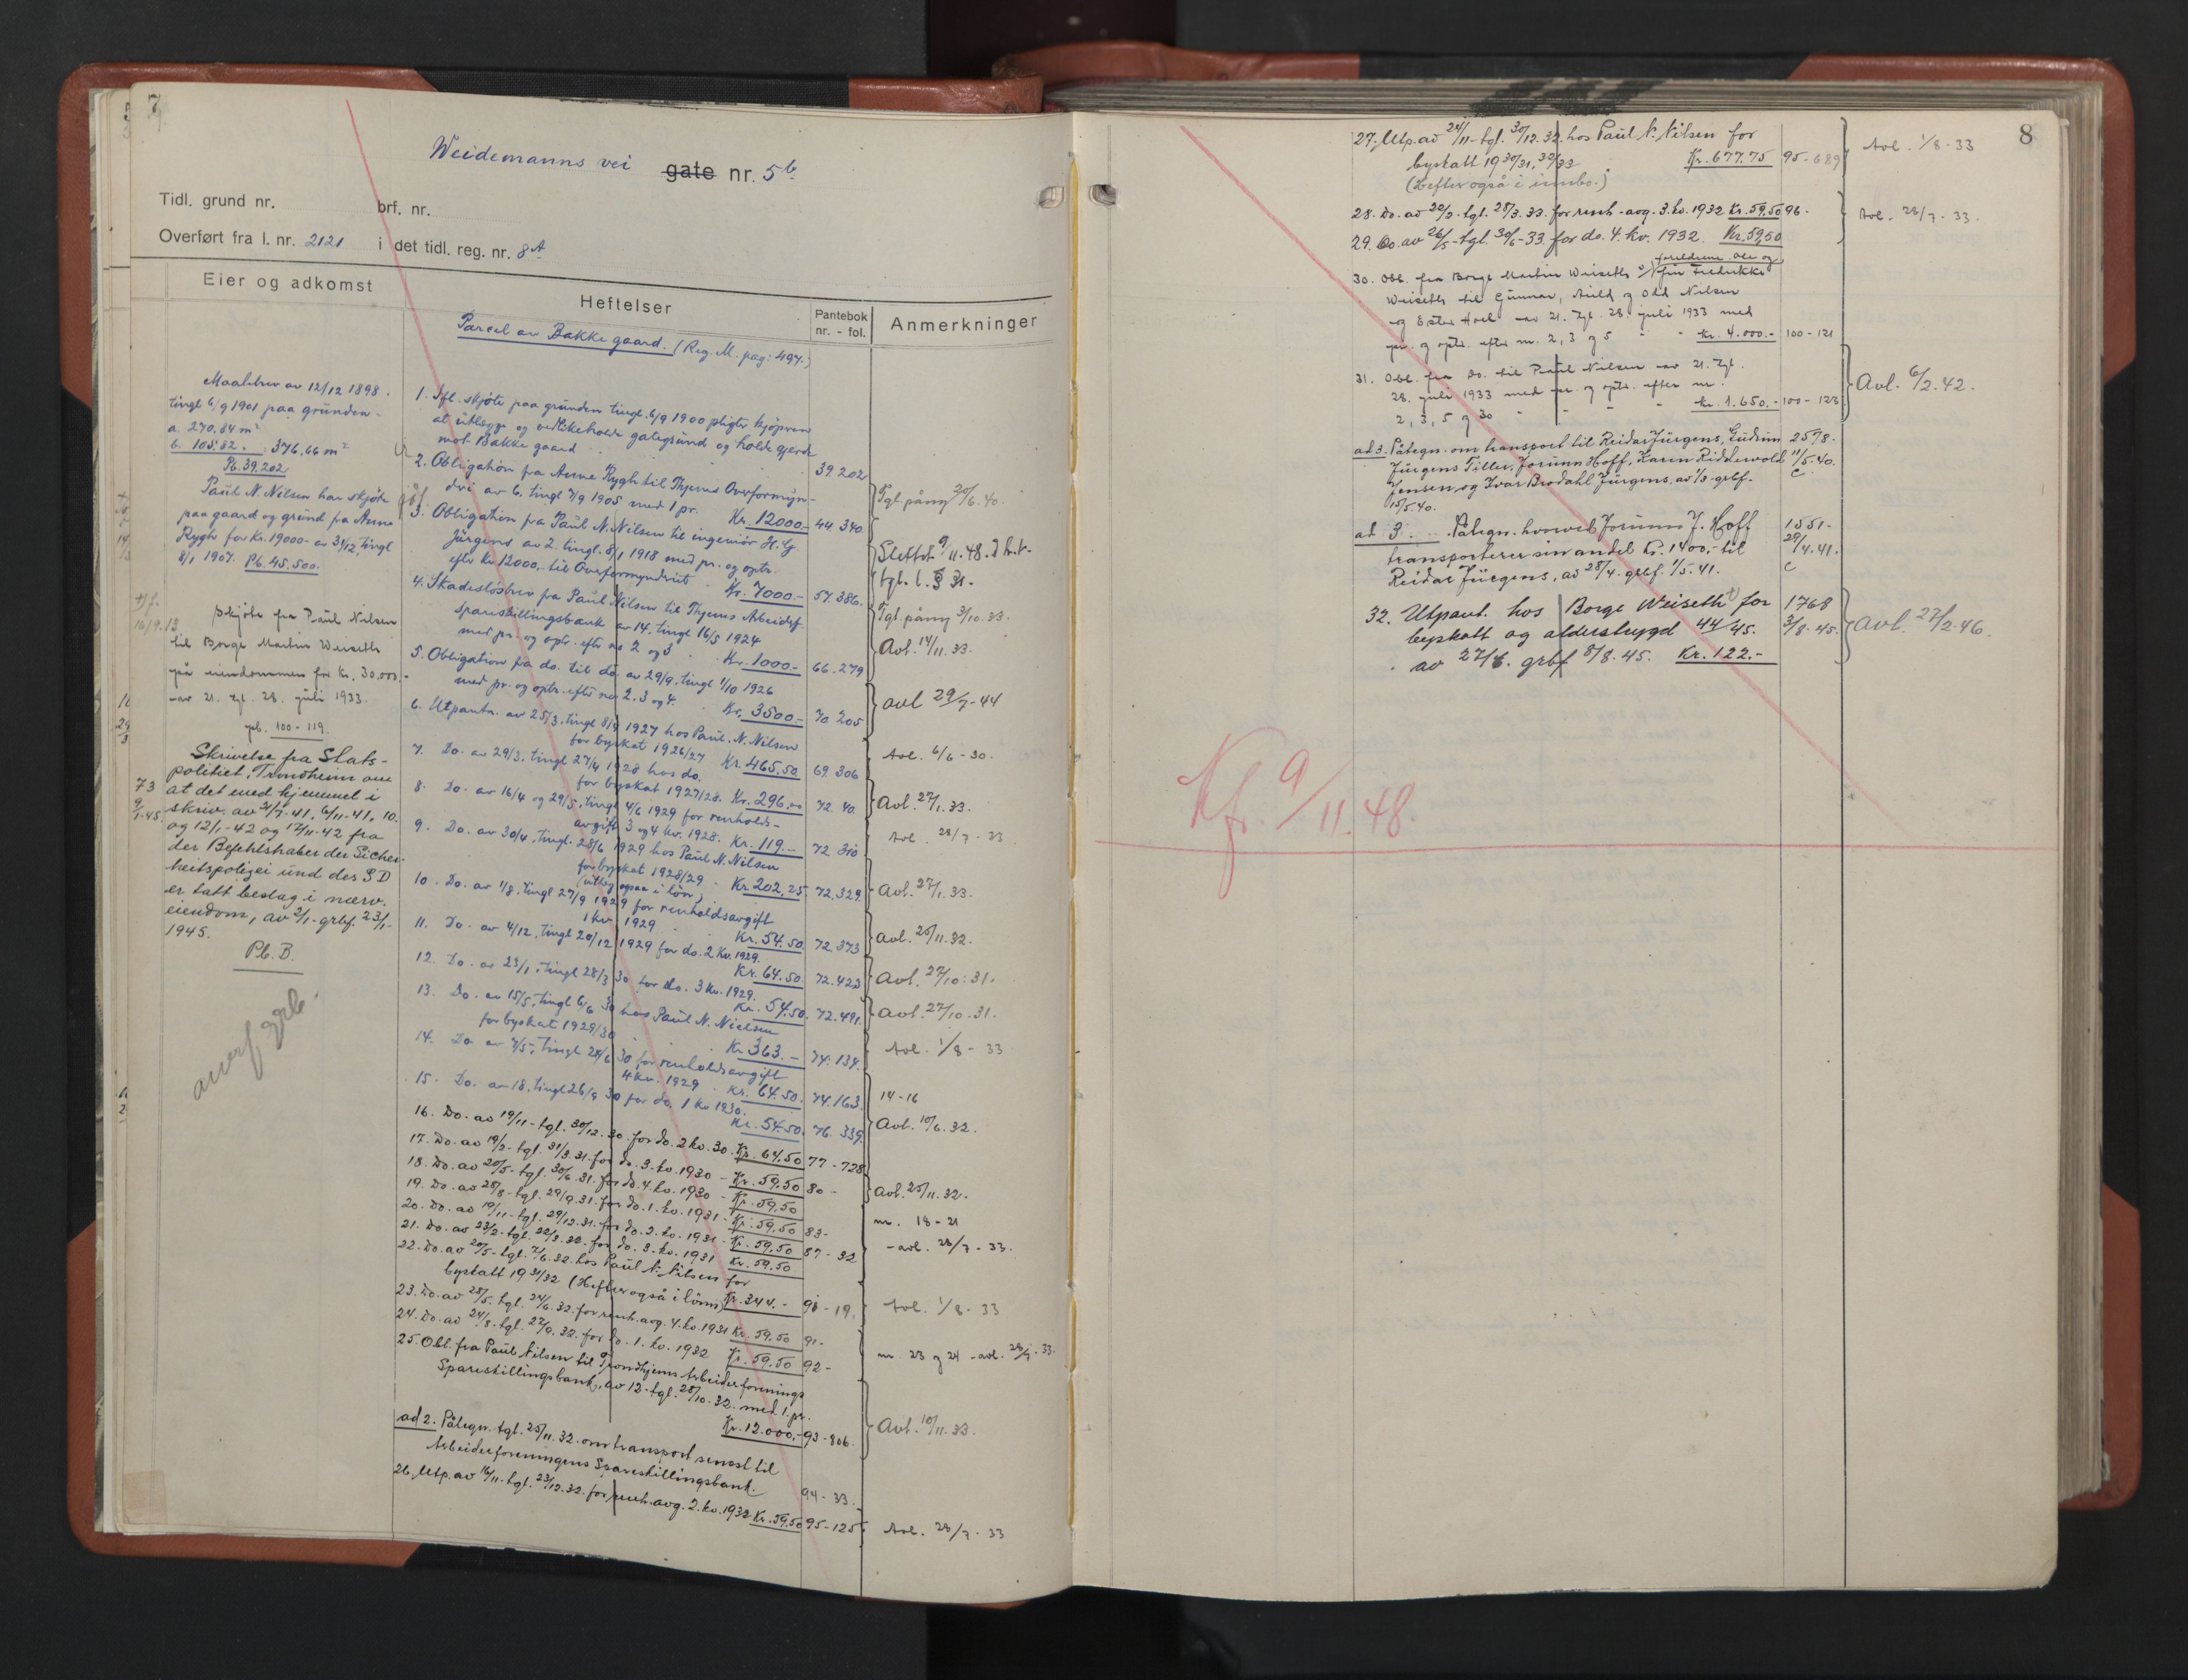 7
Weidemanns vei gate nr. 5b
Tidl. grund nr. brf. nr.
Overført fra l. nr. 2121 i det tidl. reg. nr. 8A
Eier og adkomst
Heftelser
Pantebok
nr. - fol.
Anmerkninger
Parcel av Bakke gaard. (Reg. M. pag: 497.)
Maalebrev av 12/12 1898.
tingl 6/9 1901 paa grunden -
a. 270,84 m²
b. 105,82. 376,66 m²
Pb. 39.202
Paul N. Nilsen har skjøte
paa gaard og grund fra Anne
Rygh for Kr. 19000 - av 31/12, tingl
8/1 1907. Pb. 45.500.
Skjøte fra Paul Nilsen
til Borge Martin Weiseth
på eiendommen for kr. 30.000.-
av 21. tgl. 28. juli 1933.
pb. 100 - 119.
73
9/1-45.
Skrivelse fra Stats-
politiet, Trondheim om
at det med hjemmel i
skriv. av 31/7-41, 6/11-41, 10.
og 12/1-42 og 17/11-42 fra
der Befehlshaber der Sicher-
heitspolizei und des SD
er tatt beslag i nærv.
eiendom, av 2/1- grbf. 23/1-
1945.
Pb. B.
1. Ifl. skjøte paa grunden tingl. 6/9 1900 pligter kjøperen
at utlægge og vedlikeholde gategrund og holde gjerde
mot Bakke gaard 39.202
2. Obligation fra Anne Rygh til Thjems Overformyn-
deri av 6. tingl 7/9 1905 med 1 pr. Kr. 12000.- 44 340. Tgl. påny 20/6.40.
3. Obligation fra Paul N. Nilsen til ingeniør H. G.
Jürgens av 2. tingl. 8/1 1918 med pr. og optr.
efter Kr 12000.- til Overformynderiet Kr. 7000.- 57.386. Slettet 9/11.48. d.h.t.
tgl. l. § 31.
4. Skadesløsbrev fra Paul Nilsen til Thjems Arbeiderf.
Spareskillingsbank av 14. tingl 16/5 1924
med pr. og optr. efter no 2 og 3 Kr. 1000.- 66.279 Tgl. påny 3/10.33.
Avl. 14/11.33.
5. Obligation fra do. til do av 29/9. tingl 1/10 1926
med pr. og optr. efter no 2. 3 og 4. Kr. 3500.- 70 205 avl 29/7-44
6. Utpantn. av 25/3, tingl 8/4 1927 hos Paul. N. Nilsen
for byskat 1926/27 Kr. 465,50. 69 306 Avl. 6/6-30.
7. Do. av 29/3, tingl 27/4 1928 hos do.
for byskat 1927/28. Kr. 296,00 72. 40. Avl. 27/1.33.
8. Do. av 16/4 og 29/5, tingl 4/6 1929 for renholds-
avgift 3 og 4 kv. 1928. Kr. 119.- 72 310 Avl. 28/7-33
9. Do. av 30/4, tingl. 28/6 1929 hos Paul N. Nilsen
for byskat 1928/29
(utlæg ogsaa i løn) Kr 202,25. 72.329. Avl. 27/1.33.
10. Do. av 1/8. tingl 27/9 1929 for renholdsavgift
1 kv 1929 Kr. 54.50. 72.373 Avl. 25/11.32.
11. Do. av 4/12, tingl 20/12 1929 for do. 2 kv. 1929.
Kr. 64.50. 72.423 Avl. 27/10.31.
12. Do. av 23/1, tingl 28/3 30 for do. 3 kv. 1929.
Kr. 54.50. 72.491. Avl. 27/10.31.
13. Do. av 15/5, tingl 6/6 30 hos Paul N. Nielsen
for byskat 1929/30 Kr. 363.- 74.134. Avl. 1/8-33
14. Do av 7/5, tingl 28/6 30 for renholdsavgift
4 kv. 1929 Kr. 64.50. 74.163. 14-16
15. Do. av 18. tingl 26/9 30 for do. 1 kv 1930.
Kr. 54.50. 76.339. Avl. 10/6.32.
16. Do. av 19/11 - tgl. 30/12.30. for do. 2 kv. 30. Kr. 64,50 77-728
17. Do. av 19/3 - tgl. 31/3.31. for do. 3. kv. 1930 - Kr. 59,50 80 - Avl. 25/11.32.
18. Do. av 20/5 - tgl. 30/6.31. for do. 4. kv. 1930 - Kr. 59,50
19. Do. av 28/8 - tgl. 29/9.31. for do. 1. kv. 1931 - Kr. 59,50 83 - nr. 18-21
20. Do. av 19/11 - tgl. 29/12.31. for do. 2. kv. 1931 - Kr. 59,50 87-32 - avl. 28/7-33.
21. Do. av 23/2 - tgl. 22/3.32. for do. 3. kv. 1931 Kr. 59.50
22. Do. av 20/5 - tgl. 7/6.32. hos Paul N. Nilsen for
byskatt 1931/32 (Hefter også i lönn) Kr. 344.- 90-19. Avl. 1/8-33
23. Do. av 28/5. tgl. 24/6.32. for renh. avg. 4. kv. 1931 Kr. 59,50 91-
24. Do. av 24/8 - tgl. 27/9.32. for do. 1. kv. 1932 Kr. 59,50 92 - nr. 23 og 24 - avl. 28/7-33.
25. Obl. fra Paul Nilsen til Trondhjems Arbeiderforenings
Spareskillingsbank, av 12 - tgl. 28/10.32. med 1. pr.
Kr. 12.000.- 93-806. Avl. 10/11.33.
ad 2. Påtegn. tgl. 25/11.32. om transport senest til
Arbeiderforeningens Spareskillingsbank. 94-33.
26. Utp. av 16/11 - tgl. 23/12.32. for renh. avg. 2. kv. 1932 Kr. 59,50 95-125 Avl. 28/7-33
8
27. Utp. av 24/11 - tgl. 30/12.32. hos Paul N. Nilsen for
byskatt 1930/31, 32/33 Kr. 677.75 95-689 Avl. 1/8-33
(Hefter også i innbo.)
28. Do. av 20/2 - tgl. 28/3.33. for renh. avg. 3. kv. 1932 Kr. 59,50 96 - Avl. 28/7-33.
29. Do. av 26/5 - tgl. 30/6-33. for do. 4. kv. 1932. Kr. 59,50
foreldrene Ole og
30. Obl. fra Borge Martin Weiseth til fru Fredrikke
Weiseth til Gunnar, Arild og Odd Nilsen
og Ester Hoel av 21. tgl. 28. juli 1933 med
pr. og optr. efter nr. 2, 3 og 5 - - kr. 4.000.- 100-121
31. Obl. fra do. til Paul Nilsen av 21. tgl.
28. juli 1933 med pr. og optr. efter nr.
2, 3, 5 og 30 - - - - kr. 1.650.- 100-123 Avl. 6/2.42.
ad 3. Påtegn. om transport til Reidar Jürgens, Gudrun 2578-
Jürgens Tiller, Jorunn Hoff, Karen Ridderwold 11/5.40.
Jensen, og Ivar Brodahl Jürgens, av 1/3. grbf. C.
15/5.40.
ad 3. Påtegn. hvorved Jorunn J. Hoff 1551-
transporterer sin andel Kr. 1400,- til 29/4.41.
Reidar Jürgens, av 28/4. grbf. 1/5.41. C
32. Utpant. hos Borge Weiseth for 1768
byskatt og alderstrygd 44/45. 3/8.45.
av 27/6. grbf. 8/8.45. Kr. 122.- Avl. 27/2-46.
Kfr. 9/11.48.